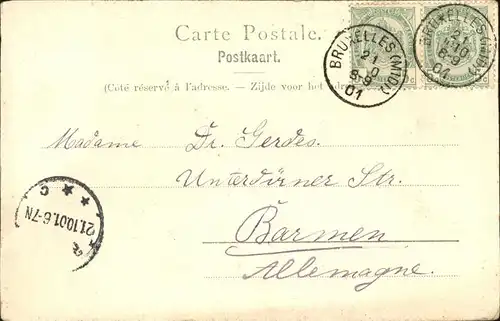 Carte Postale.
Postkaart.
(Côté réservé à l'adresse. – Zijde voor het
BRUXELLES (MIDI)
21
8-9
01
BRUXELLES (MIDI)
21
10
8-9
01
Madame Dr. Gerdes.
Str.
Barmen
Allemagne.
21.10.01.6-7N
c